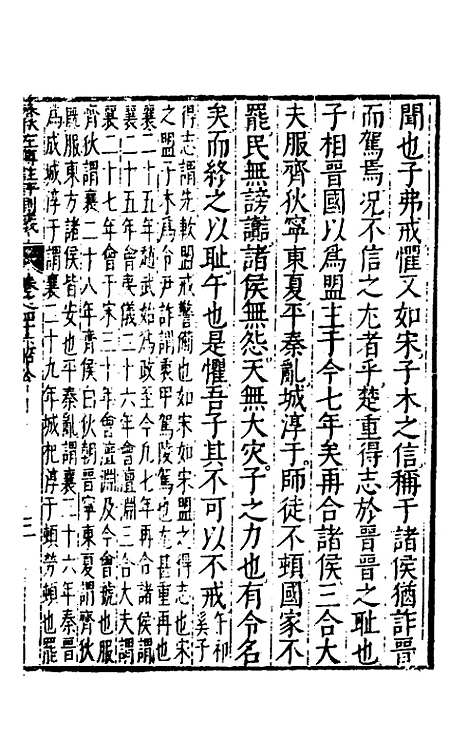 聞也子弗戒懼又如宋子木之信稱于諸侯猶詐晉
而駕焉况不信之尤者乎楚重得志於晉晉之耻也
子相晉國以爲盟主于今七年矣再合諸侯三合大
夫服齊狄寧東夏平秦亂城淳于師徒不頓國家不
罷民無謗讟諸侯無怨天無大灾子之力也有令名
矣而終之以耻午也是懼吾子其不可以不戒午祁奚子
得志謂先歃盟戒警備也如宋如宋盟之得志也宋
之盟子木爲令尹詐謂衷甲駕陵駕也尤甚重再也
襄二十五年趙武始爲政至今九七年再合諸侯謂
襄二十五年會夷儀二十六年會澶淵三合大夫謂
襄二十七年會于宋三十年會澶淵及今會虢也服
齊狄謂襄二十八年齊侯白狄朝晉寧東夏謂齊狄
旣服東方諸侯皆安也平秦亂謂襄二十六年秦晉
爲成城淳于謂襄二十九年城杞淳于頓勞頓也罷
春秋左傳註評測義 卷之四十六昭公 二